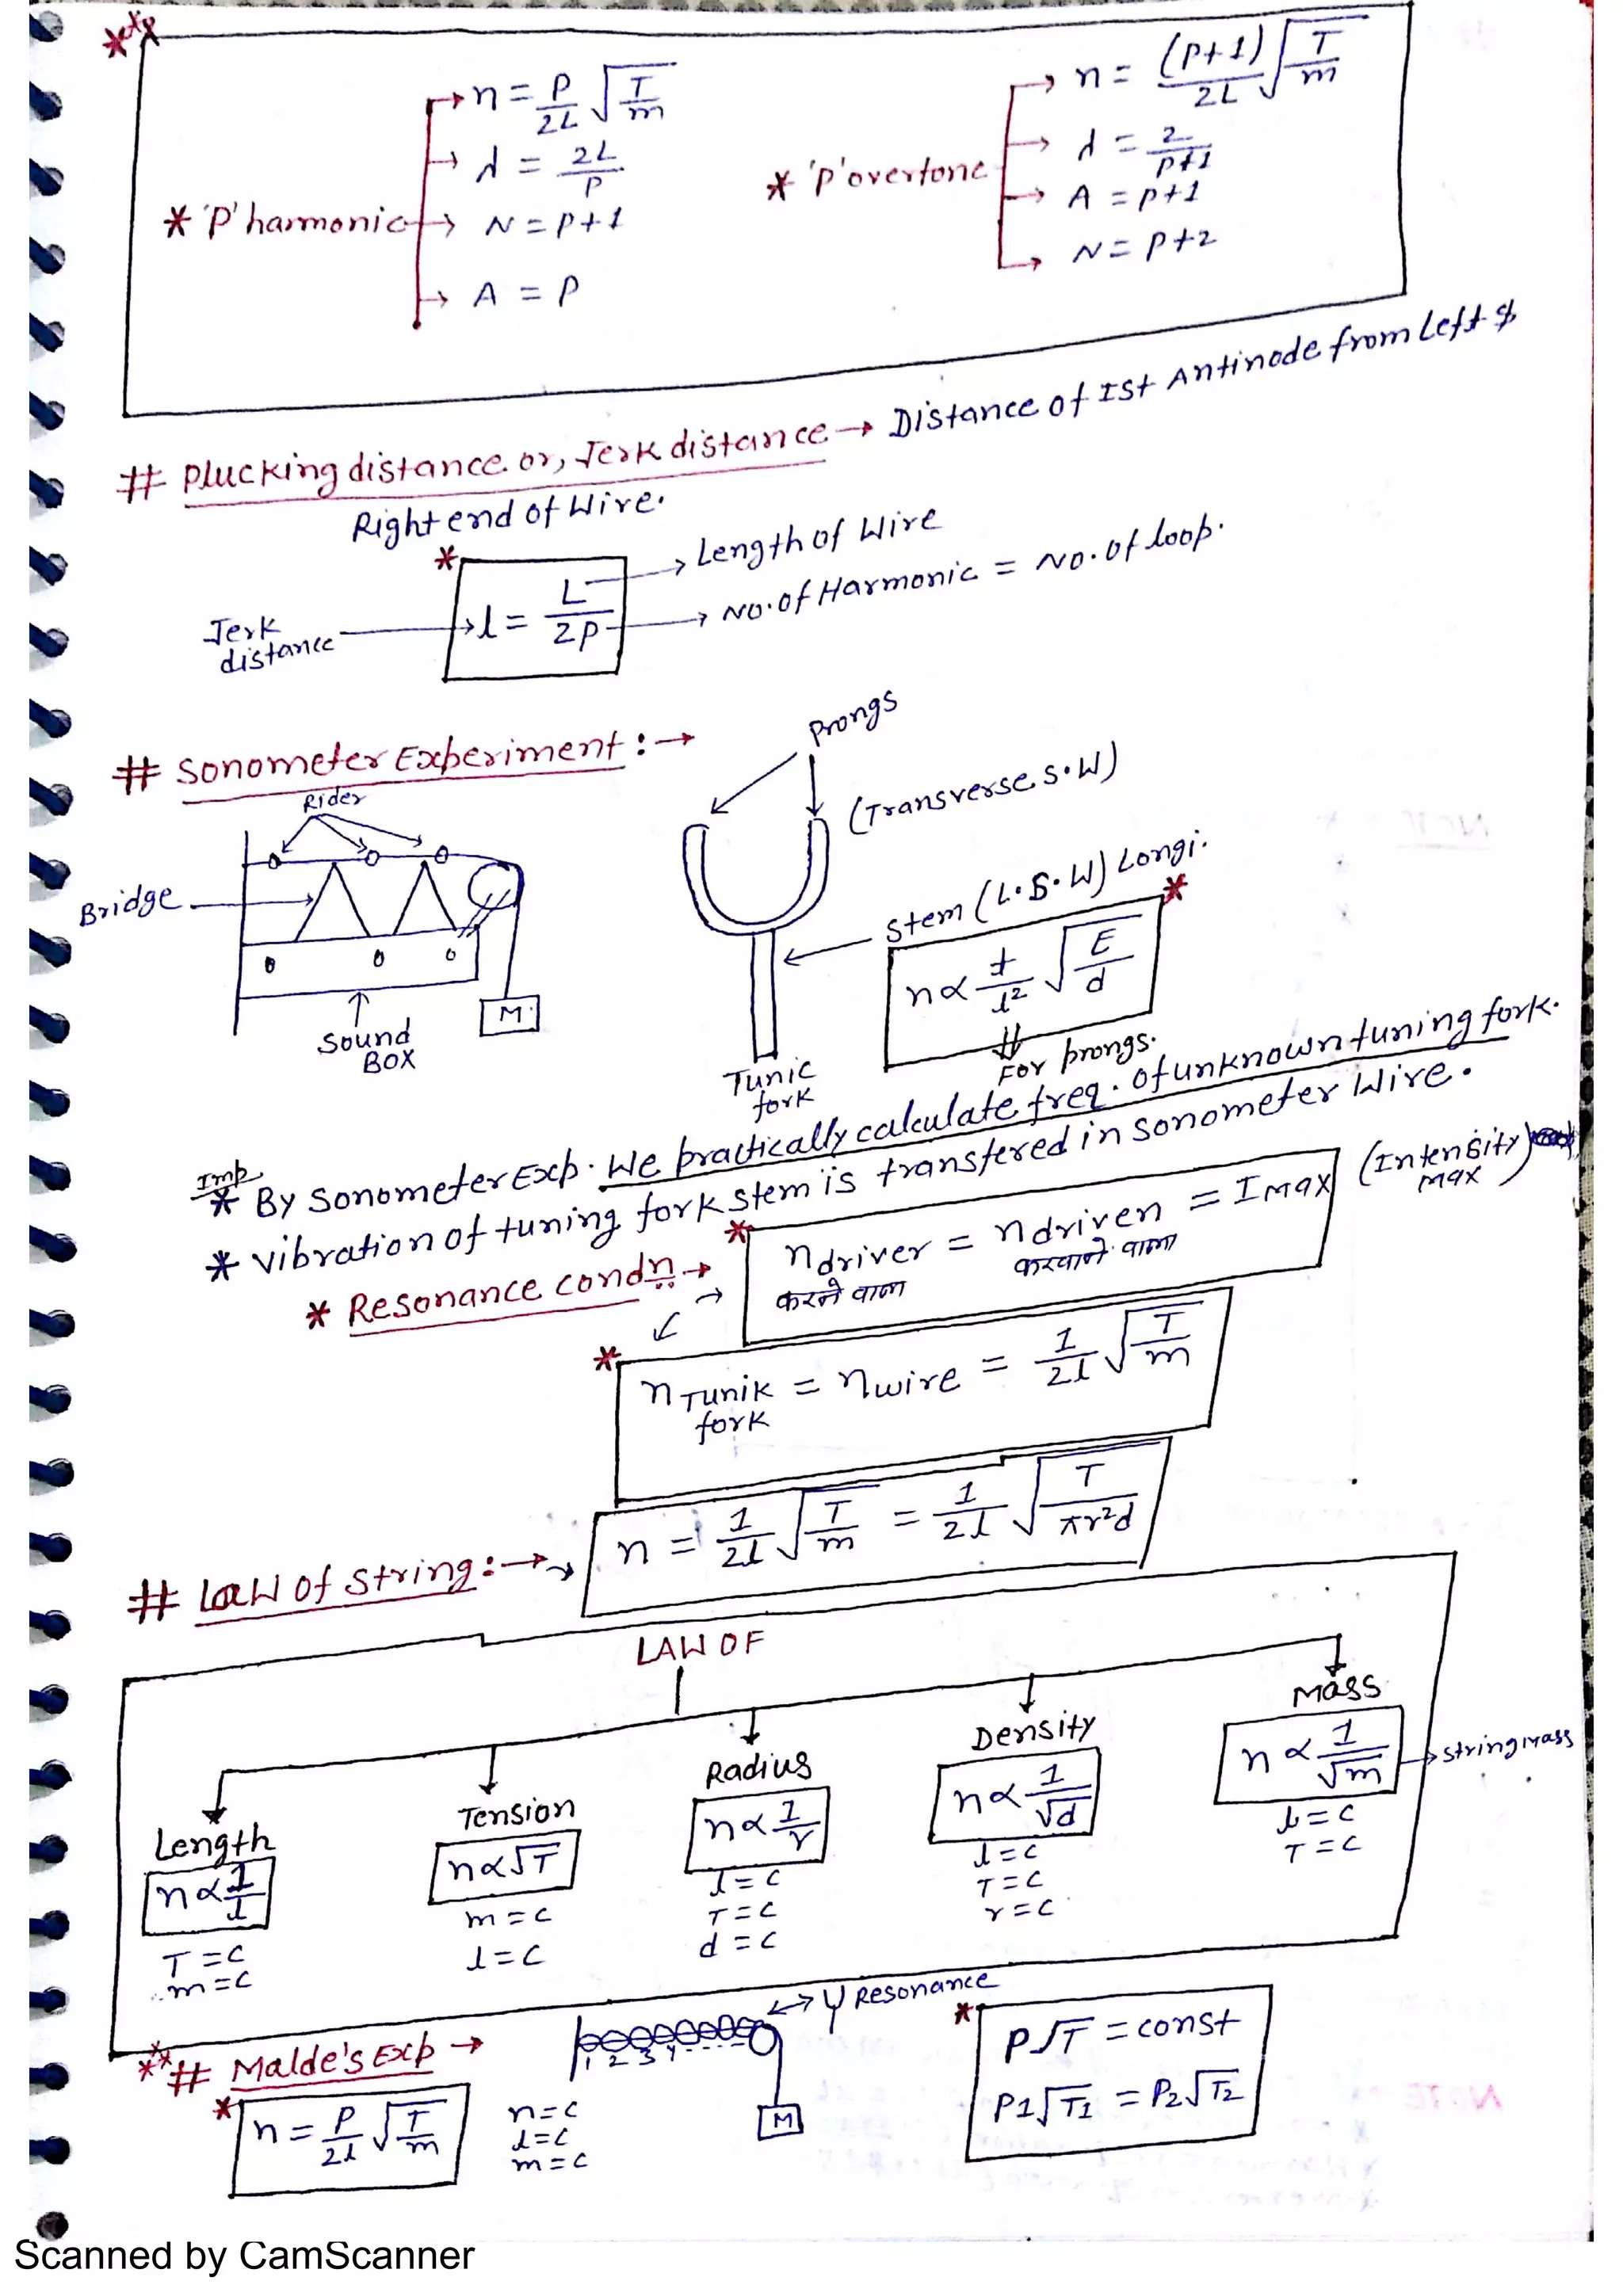 n = P/2L √T/m
λ = 2L/P
* 'P' harmonic → N = P+1
A = P
* 'P' overtone
n = (P+1)/2L √T/m
λ = 2/P+1
A = P+1
N = P+2
# Plucking distance or, Jerk distance → Distance of Ist Antinode from Left &
Right end of Wire.
* l = L/2P
Length of Wire
No. of Harmonic = No. of loop.
Jerk
distance
# Sonometer Experiment :→
Rider
Bridge
Sound
BOX
M
Prongs
(Transverse S.W)
Stem (L.S.W) Longi.
* n ∝ t/l² √E/d
For prongs.
Tunic
fork
Imp
* By Sonometer Exp. We practically calculate freq. of unknown tuning fork.
* vibration of tuning fork stem is transfered in sonometer Wire.
* Resonance condn →
* n driver = n driven = I MAX (Intensity)
max
करने वाला करवाने वाला
* n Tunik = n wire = 1/2l √T/m
fork
# Law of String :→
n = 1/2l √T/m = 1/2l √T/πr²d
LAW OF
Length
n ∝ 1/l
T = C
m = C
Tension
n ∝ √T
m = C
l = C
Radius
n ∝ 1/r
l = C
T = C
d = C
Density
n ∝ 1/√d
l = C
T = C
r = C
Mass
n ∝ 1/√m → string mass
l = C
T = C
**# Malde's Exp →
* n = P/2l √T/m
n = C
l = C
m = C
1 2 3 4 ----
Resonance
M
* P√T = const
P1√T1 = P2√T2
Scanned by CamScanner